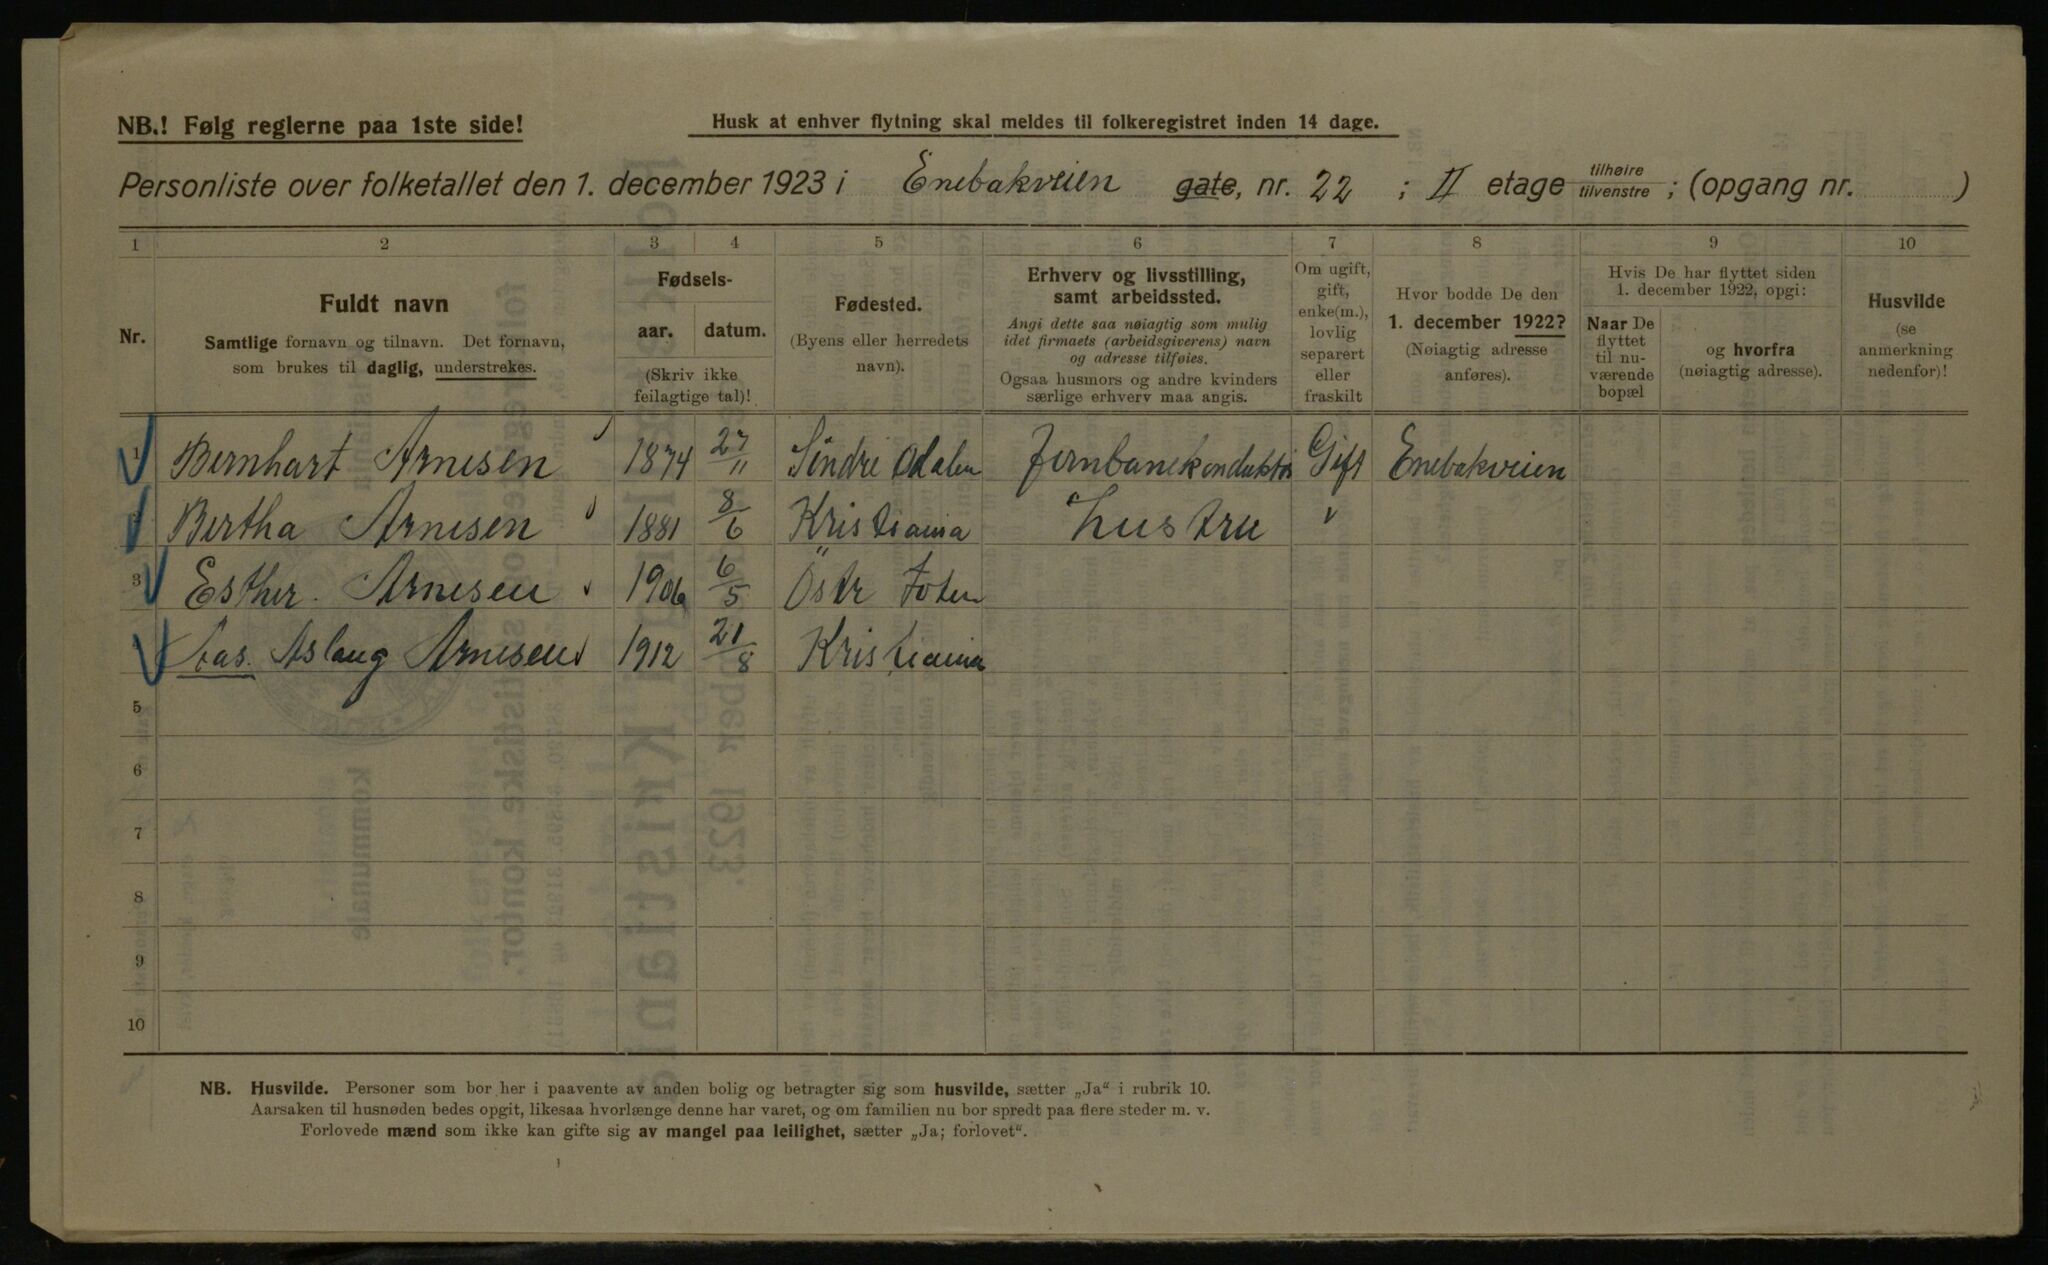 NB.! Følg reglerne paa 1ste side!
Husk at enhver flytning skal meldes til folkeregistret inden 14 dage.
Personliste over folketallet den 1. december 1923 i Enebakveien gate, nr. 22 ; II etage tilhøire tilvenstre ; (opgang nr. )
1 2 3 4 5 6 7 8 9 10
Nr.
Fuldt navn
Samtlige fornavn og tilnavn. Det fornavn,
som brukes til daglig, understrekes.
Fødsels-
aar. datum.
(Skriv ikke
feilagtige tal)!
Fødested.
(Byens eller herredets
navn).
Erhverv og livsstilling,
samt arbeidssted.
Angi dette saa nøiagtig som mulig
idet firmaets (arbeidsgiverens) navn
og adresse tilføies.
Ogsaa husmors og andre kvinders
særlige erhverv maa angis.
Om ugift,
gift,
enke(m.),
lovlig
separert
eller
fraskilt
Hvor bodde De den
1. december 1922?
(Nøiagtig adresse
anføres).
Hvis De har flyttet siden
1. december 1922, opgi:
Naar De
flyttet
til nu-
værende
bopæl
og hvorfra
(nøiagtig adresse).
Husvilde
(se
anmerkning
nedenfor)!
1 Bernhart Arnesen 1874 27/11 Söndre Odalen Jernbanekonduktör Gift Enebakveien
2 Bertha Arnesen 1881 8/6 Kristiania hustru "
3 Esther. Arnesen 1906 6/5 Östr Toten
4 Aas. Aslaug Arnesen 1912 21/8 Kristiania
5
6
7
8
9
10
NB. Husvilde. Personer som bor her i paavente av anden bolig og betragter sig som husvilde, sætter „Ja“ i rubrik 10.
Aarsaken til husnøden bedes opgit, likesaa hvorlænge denne har varet, og om familien nu bor spredt paa flere steder m. v.
Forlovede mænd som ikke kan gifte sig av mangel paa leilighet, sætter „Ja; forlovet“.